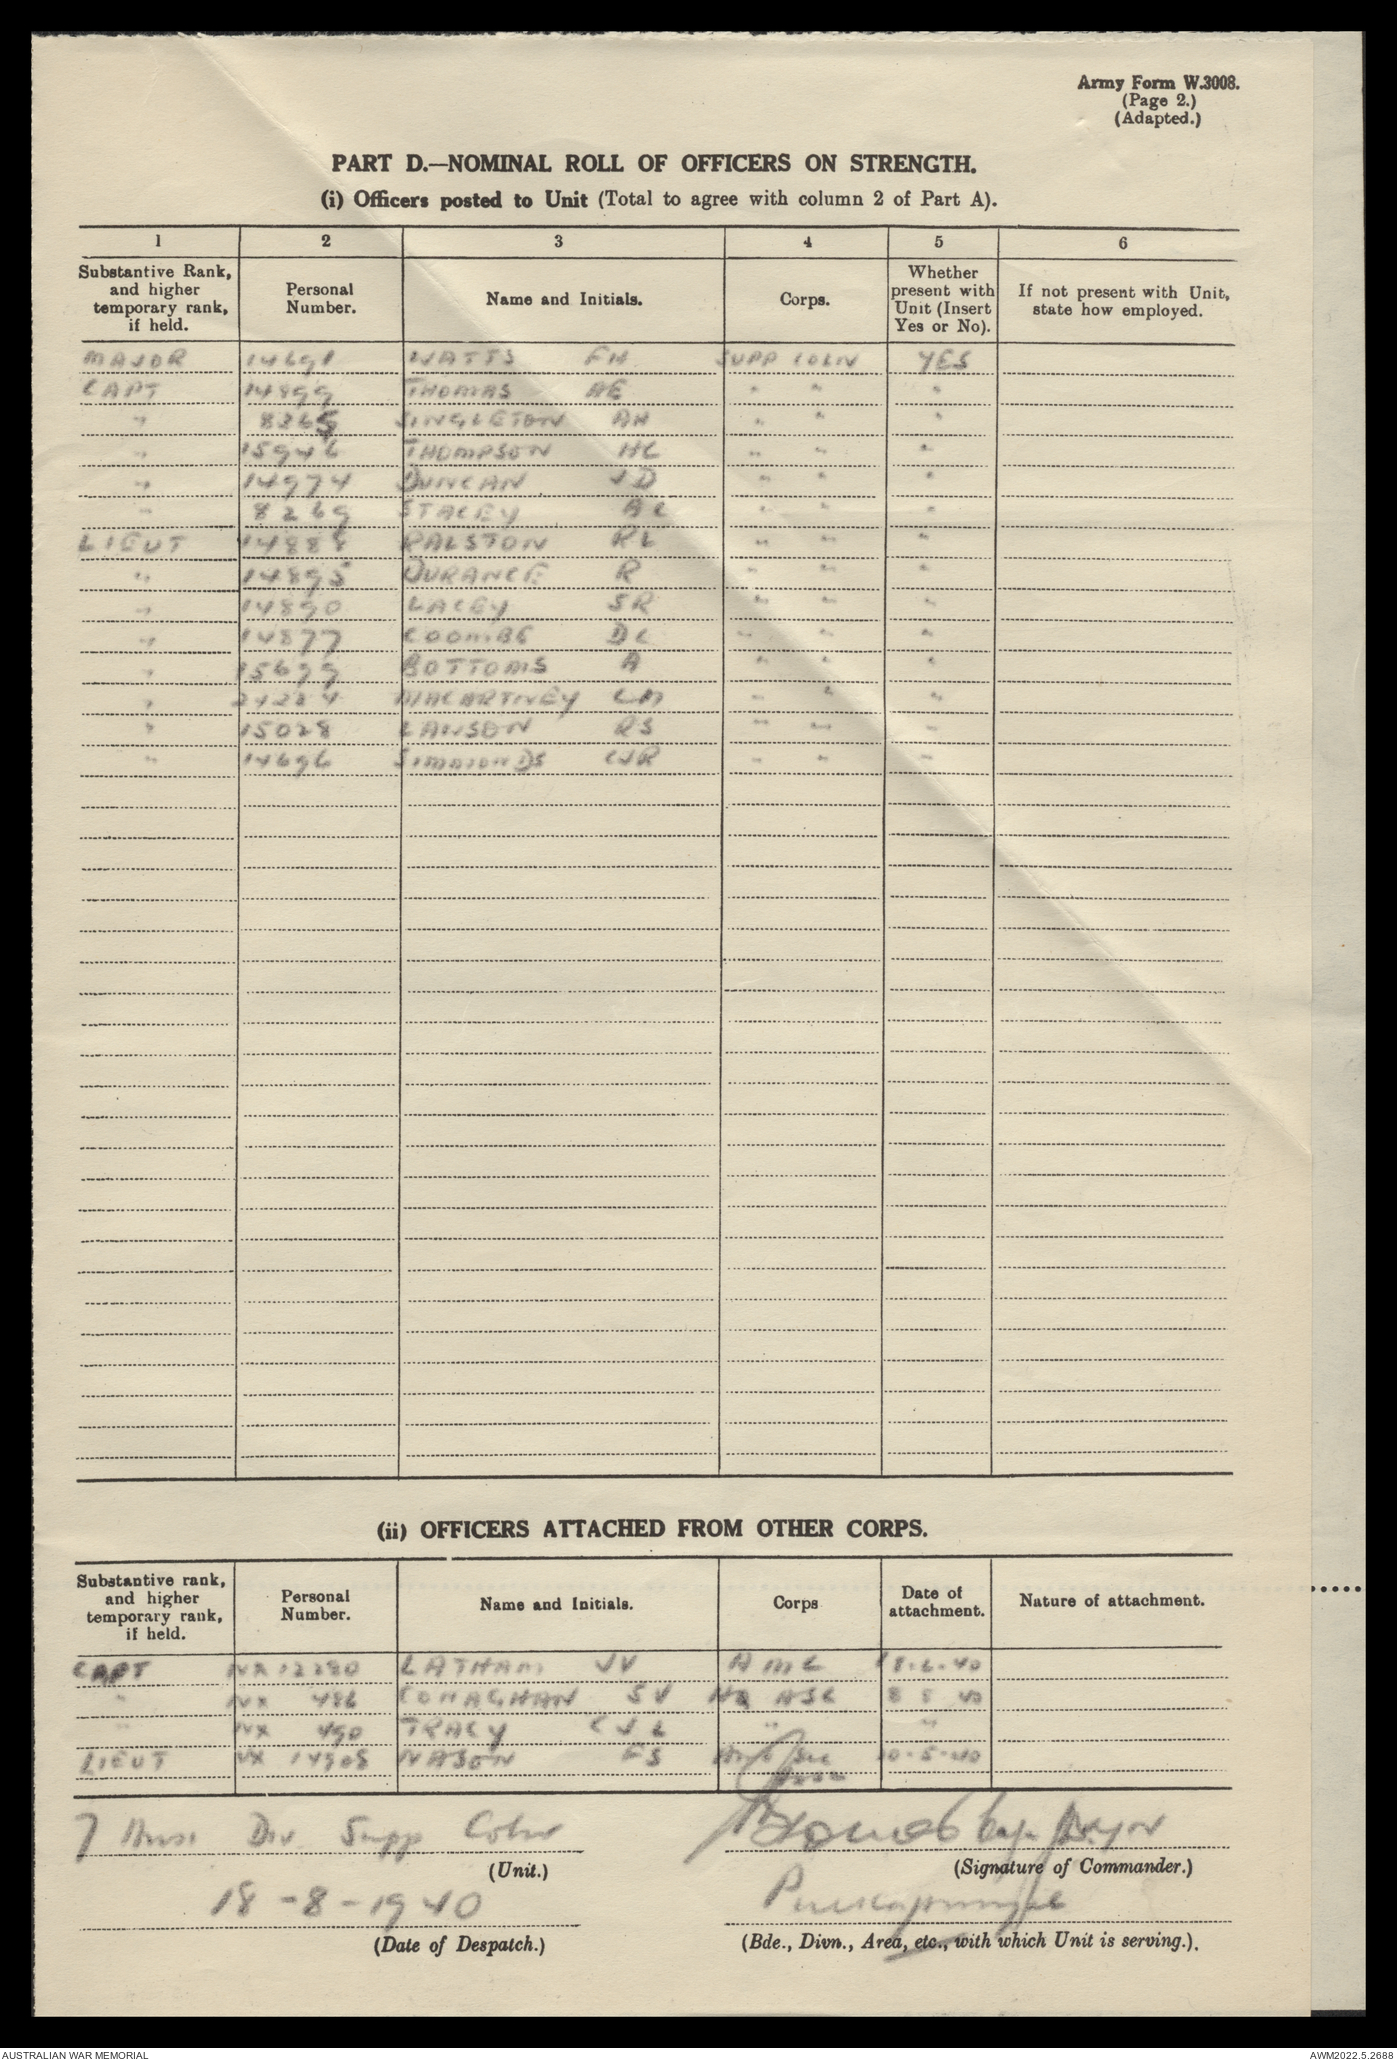 Army Form W.3008.
(Page 2.)
(Adapted.)
PART D.—NOMINAL ROLL OF OFFICERS ON STRENGTH.
(i) Officers posted to Unit (Total to agree with column 2 of Part A).
1 2 3 4 5 6
Substantive Rank, and higher temporary rank, if held. Personal Number. Name and Initials. Corps. Whether present with Unit (Insert Yes or No). If not present with Unit, state how employed.
MAJOR 14691 WATTS FH SUPP COLN YES
CAPT 14899 THOMAS AE " " "
" 8265 SINGLETON AH " " "
" 15946 THOMPSON HC " " "
" 14974 DUNCAN JD " " "
" 8269 STACEY AC " " "
LIEUT 14888 RALSTON RL " " "
" 14895 DURANCE R " " "
" 14890 LACEY SR " " "
" 14877 COOMBE DC " " "
" 15699 BOTTOMS A " " "
" 24224 MACARTNEY " " "
" 15028 LAWSON RS " " "
" 14696 SIMMONDS CJR " " "
(ii) OFFICERS ATTACHED FROM OTHER CORPS.
Substantive rank, and higher temporary rank, if held. Personal Number. Name and Initials. Corps Date of attachment. Nature of attachment.
CAPT NX12280 LATHAM JV AMC 18-6-40
" NX 486 CONAGHAN SV HQ ASC 8 5 40
" NX 490 TRACY CJL " "
LIEUT VX 14908 NASON FS Sec 10-5-40
7 Aust Div Supp Coln
(Unit.)
(Signature of Commander.)
18-8-1940
Puckapunyal
(Date of Despatch.)
(Bde., Divn., Area, etc., with which Unit is serving.).
AUSTRALIAN WAR MEMORIAL
AWM2022.5.2688